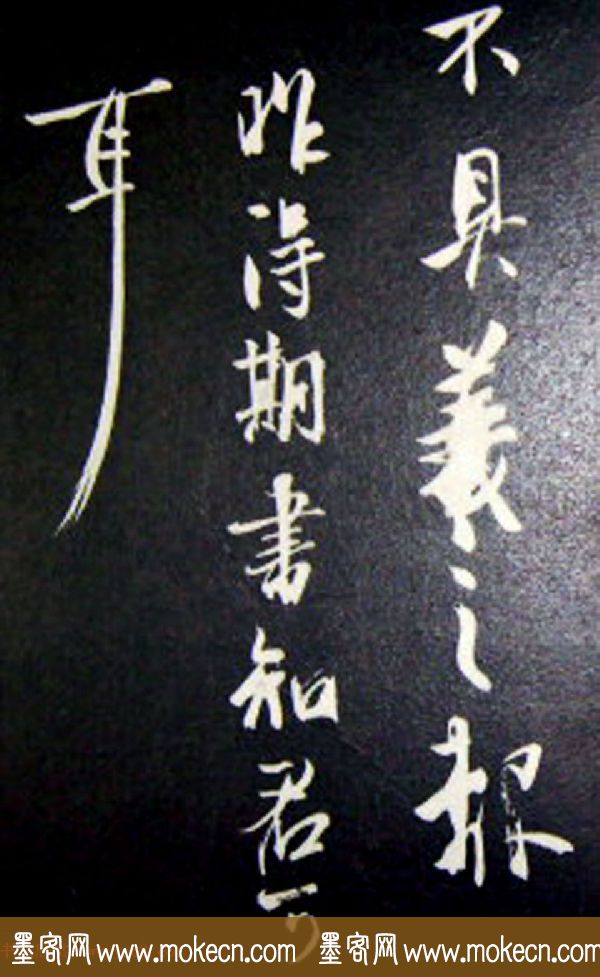 不具羲之報
昨得期書知君
耳
墨客网 www.mokecn.com 墨客网 www.mokecn.com